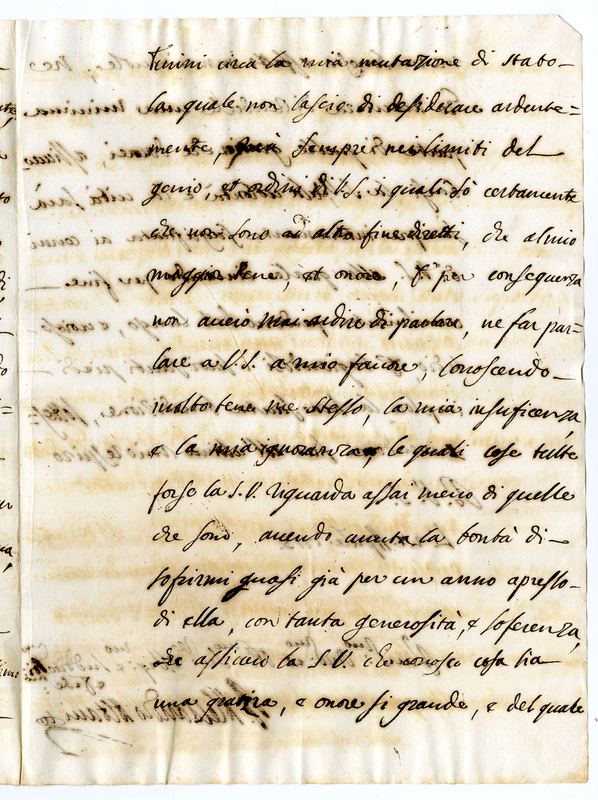 tirmi circa la mia mutazione di stato –
la quale non lascio di desiderare ardente=
mente, sempre nei limiti del
genio, et ordini di V.S. i quali sò certamente
che non sono ad altro fine diretti, che al mio
maggior bene, et onore, per consequenza
non averò mai ardire di parlare, ne far par=
lare a V.S. a mio favore, conoscendo –
molto bene me stesso, la mia insuficenza,
e la mia ignoranza, le quali cose tutte
forse la S.V. riguarda assai meno di quelle
che sono, avendo avuta la bontà di –
sofrirmi quasi già per un anno apresso –
di ella, con tanta generosità, e soferenza,
che assicuro la S.V. che conosco cosa sia
una grazia, e onore si grande, e del quale